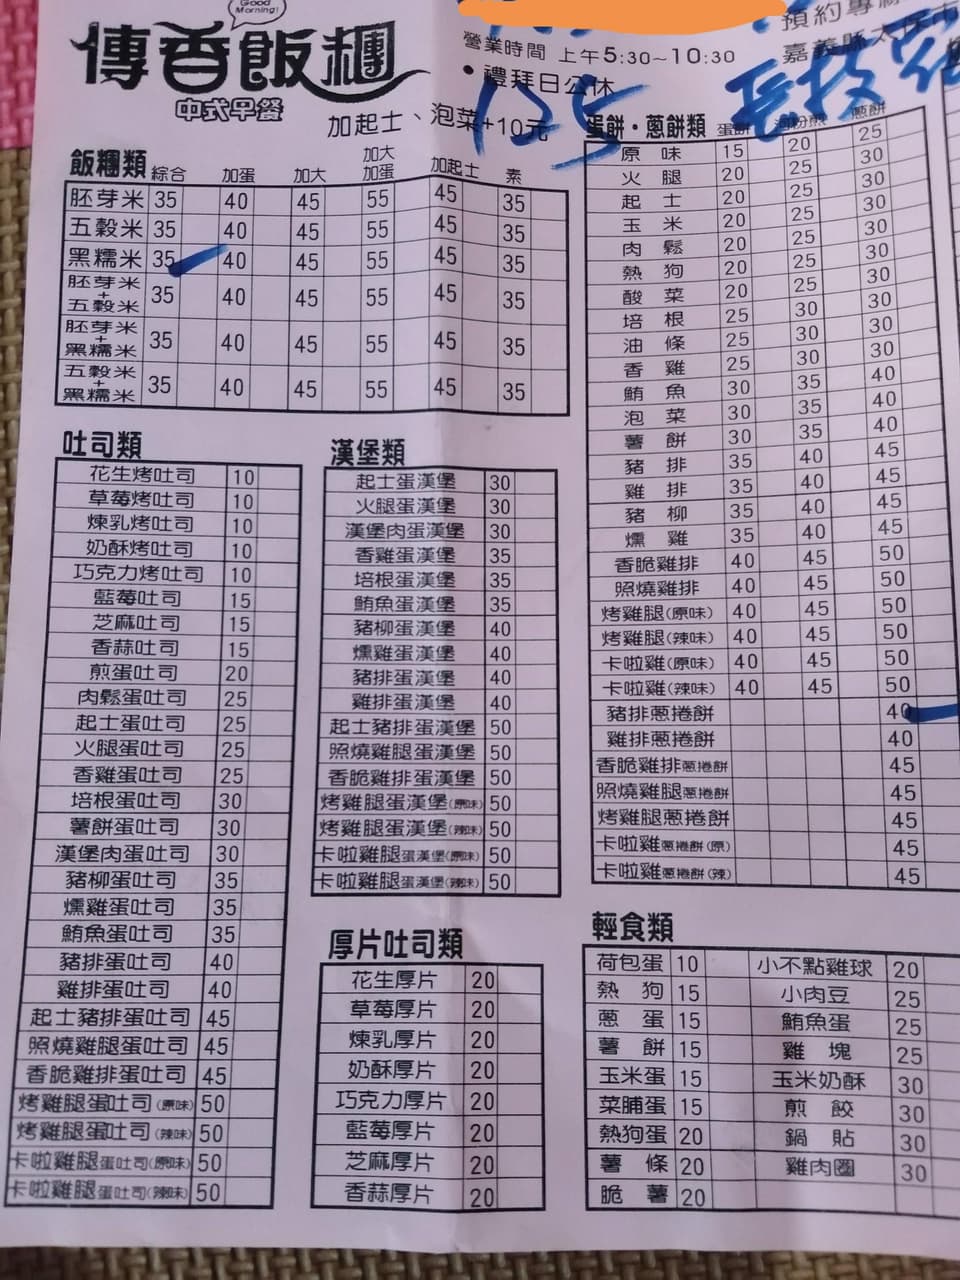 Good
Morning!
傳香飯糰
中式早餐
營業時間 上午5:30~10:30
•禮拜日公休
加起士、泡菜+10元
125
預約專
嘉義縣太保市
飯糰類 綜合 加蛋 加大 加大加蛋 加起士 素
胚芽米 35 40 45 55 45 35
五穀米 35 40 45 55 45 35
黑糯米 35 40 45 55 45 35
胚芽米+五穀米 35 40 45 55 45 35
胚芽米+黑糯米 35 40 45 55 45 35
五穀米+黑糯米 35 40 45 55 45 35
吐司類
花生烤吐司 10
草莓烤吐司 10
煉乳烤吐司 10
奶酥烤吐司 10
巧克力烤吐司 10
藍莓吐司 15
芝麻吐司 15
香蒜吐司 15
煎蛋吐司 20
肉鬆蛋吐司 25
起士蛋吐司 25
火腿蛋吐司 25
香雞蛋吐司 25
培根蛋吐司 30
薯餅蛋吐司 30
漢堡肉蛋吐司 30
豬柳蛋吐司 35
燻雞蛋吐司 35
鮪魚蛋吐司 35
豬排蛋吐司 40
雞排蛋吐司 40
起士豬排蛋吐司 45
照燒雞腿蛋吐司 45
香脆雞排蛋吐司 45
烤雞腿蛋吐司(原味) 50
烤雞腿蛋吐司(辣味) 50
卡啦雞腿蛋吐司(原味) 50
卡啦雞腿蛋吐司(辣味) 50
漢堡類
起士蛋漢堡 30
火腿蛋漢堡 30
漢堡肉蛋漢堡 30
香雞蛋漢堡 35
培根蛋漢堡 35
鮪魚蛋漢堡 35
豬柳蛋漢堡 40
燻雞蛋漢堡 40
豬排蛋漢堡 40
雞排蛋漢堡 40
起士豬排蛋漢堡 50
照燒雞腿蛋漢堡 50
香脆雞排蛋漢堡 50
烤雞腿蛋漢堡(原味) 50
烤雞腿蛋漢堡(辣味) 50
卡啦雞腿蛋漢堡(原味) 50
卡啦雞腿蛋漢堡(辣味) 50
厚片吐司類
花生厚片 20
草莓厚片 20
煉乳厚片 20
奶酥厚片 20
巧克力厚片 20
藍莓厚片 20
芝麻厚片 20
香蒜厚片 20
蛋餅·蔥餅類 蛋餅 蔥餅
原味 15 20 25
火腿 20 25 30
起士 20 25 30
玉米 20 25 30
肉鬆 20 25 30
熱狗 20 25 30
酸菜 20 25 30
培根 25 30 30
油條 25 30 30
香雞 25 30 30
鮪魚 30 35 40
泡菜 30 35 40
薯餅 30 35 40
豬排 35 40 45
雞排 35 40 45
豬柳 35 40 45
燻雞 35 40 45
香脆雞排 40 45 50
照燒雞排 40 45 50
烤雞腿(原味) 40 45 50
烤雞腿(辣味) 40 45 50
卡啦雞(原味) 40 45 50
卡啦雞(辣味) 40 45 50
豬排蔥捲餅 40
雞排蔥捲餅 40
香脆雞排蔥捲餅 45
照燒雞腿蔥捲餅 45
烤雞腿蔥捲餅 45
卡啦雞蔥捲餅(原) 45
卡啦雞蔥捲餅(辣) 45
輕食類
荷包蛋 10 小不點雞球 20
熱狗 15 小肉豆 25
蔥蛋 15 鮪魚蛋 25
薯餅 15 雞塊 25
玉米蛋 15 玉米奶酥 30
菜脯蛋 15 煎餃 30
熱狗蛋 20 鍋貼 30
薯條 20 雞肉圈 30
脆薯 20